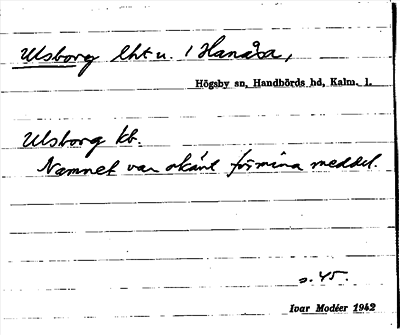 Ulsborg lht u. 1 Hanåsa,
Högsby sn, Handbörds hd, Kalm. l.
Ulsborg kb.
Namnet var okänt för mina meddel.
s. 45.
Ivar Modéer 1942